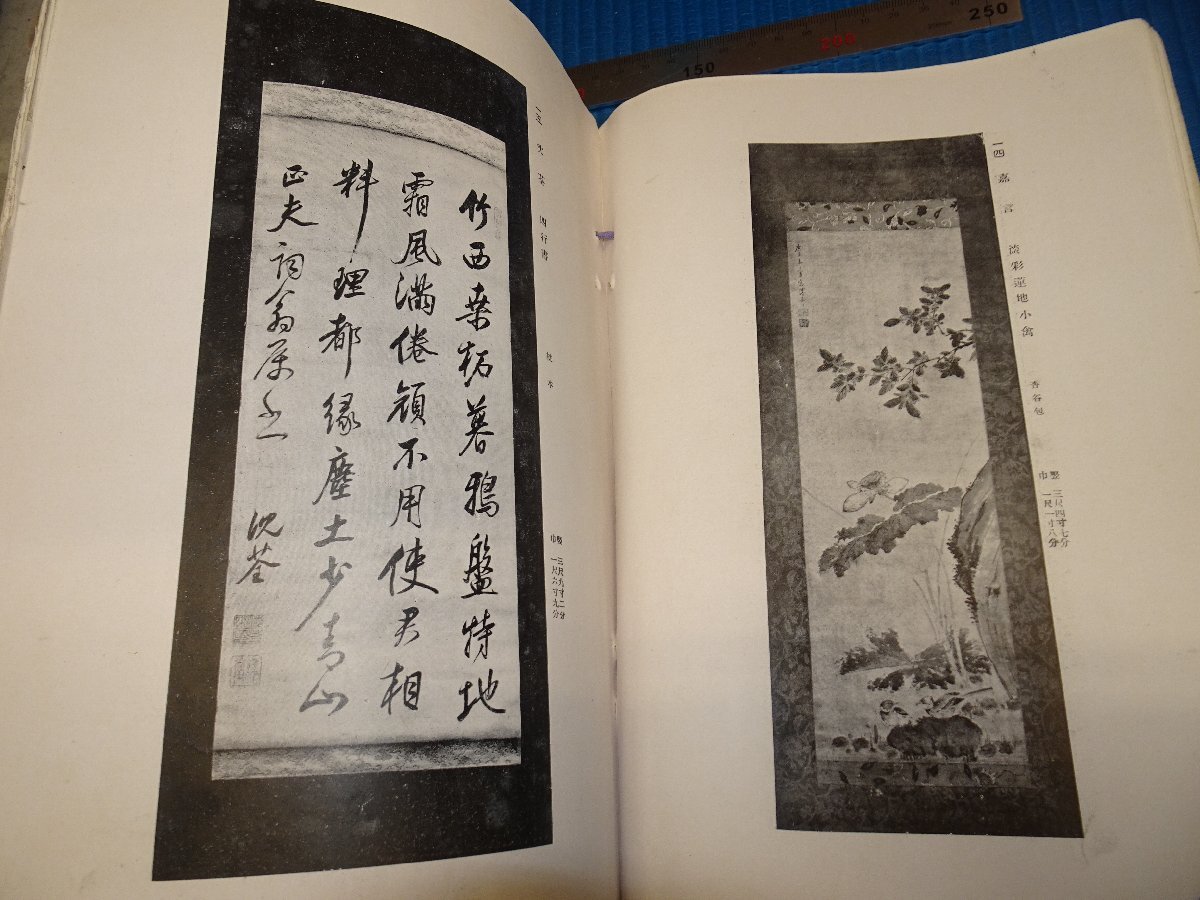 250
200
150
一四 嘉言 淡彩蓮地小禽 香谷包
竪 三尺四寸七分
巾 一尺一寸八分
一五 沈荃 四行書
竪 三尺九寸二分
巾 一尺六寸九分
竹西桑柘暮鴉盤特地
霜風滿倦顏不用使君相
料理都緣塵土少青山
正夫詞翁屬
沈荃